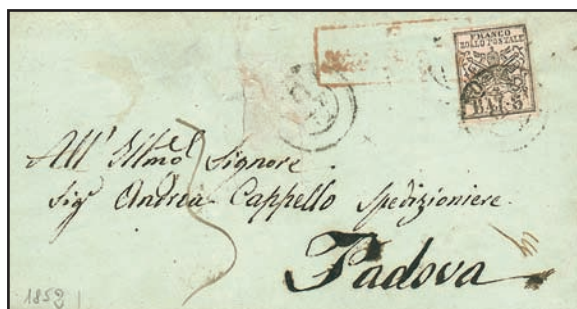 FRANCO
BOLLO POSTALE
BAJ. 5
All' Illmo Signore
Sigr Andrea Cappello Spedizioniere
Padova
1852